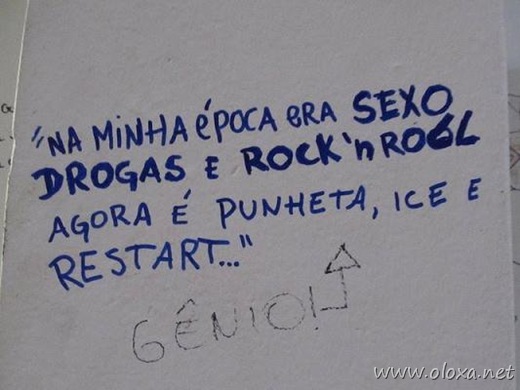 "NA MiNHA éPOCA eRA SEXO
DROGAS E ROCK'nROLL
AGORA É PUNHETA, ICE E
RESTART..."
GÊNIO!
www.oloxa.net